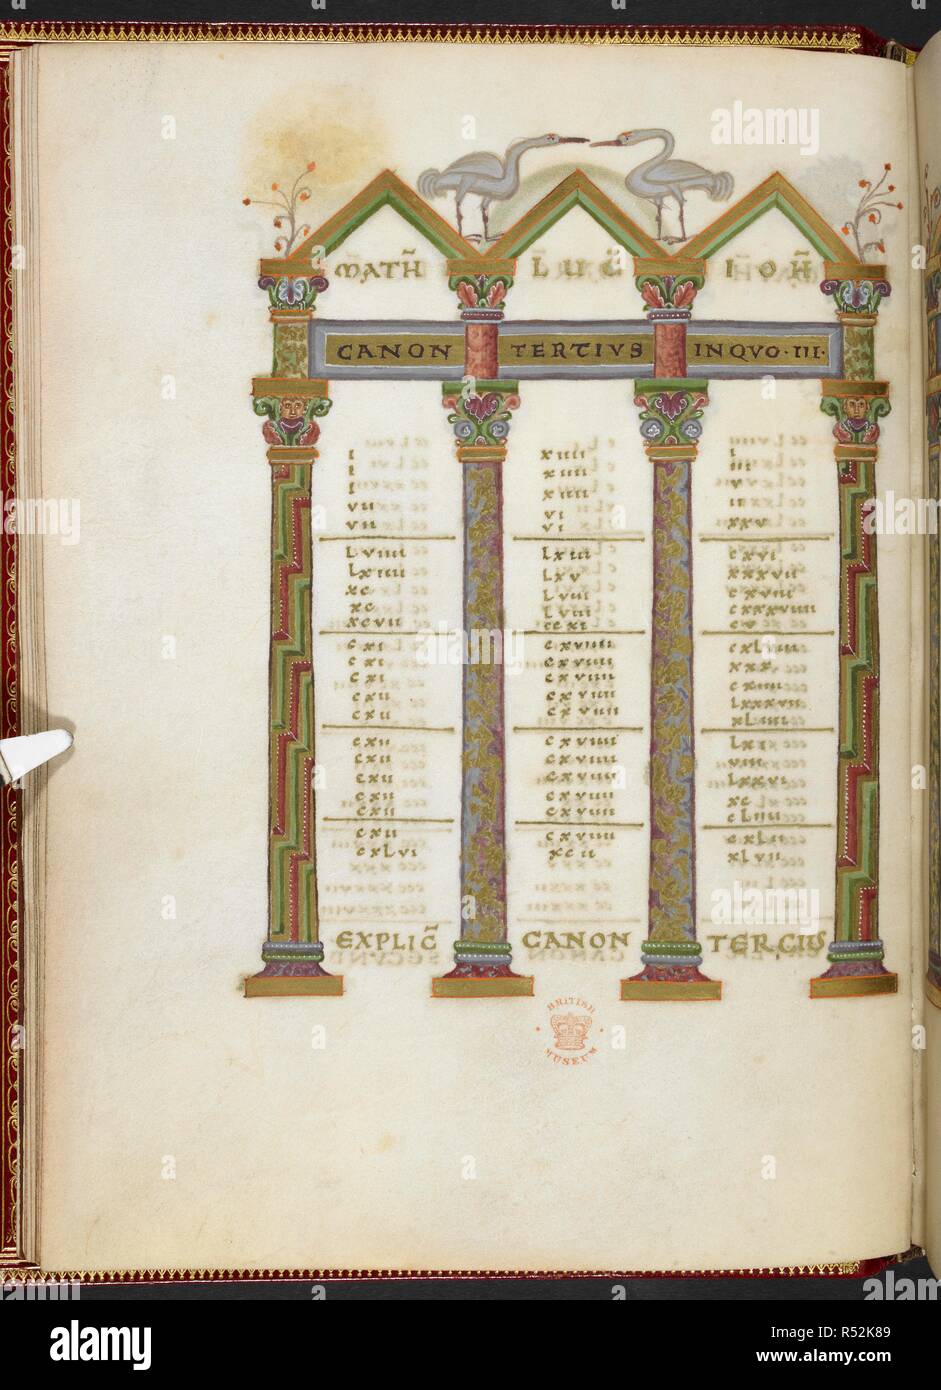 MATH̄ LUC̄ IOH̄
CANON TERTIVS INQVO · III ·
i xiiii i
i xiiii iii
i xiiii v
vii vi ii
vii vi xxv
Lviiii Lxiii cxvi
Lxiiii Lxv xxxvii
xc Lviii cxviii
xc Lviii cxxxviiii
xcvii ccxi cv
cxi cxviiii cxLviii
cxi cxviiii xxx
cxi cxviiii cxiiii
cxii cxviiii Lxxxvii
cxii cxviiii xLiiii
cxii cxviiii Lxi
cxii cxviiii viii
cxii cxviiii Lxxvi
cxii cxviiii xc
cxii cxviiii cLiiii
cxii cxviiii cxLii
cxLvi xcii xLvii
EXPLIC̄ CANON TERCIUS
BRITISH
MUSEUM
alamy
Image ID: R52K89
www.alamy.com